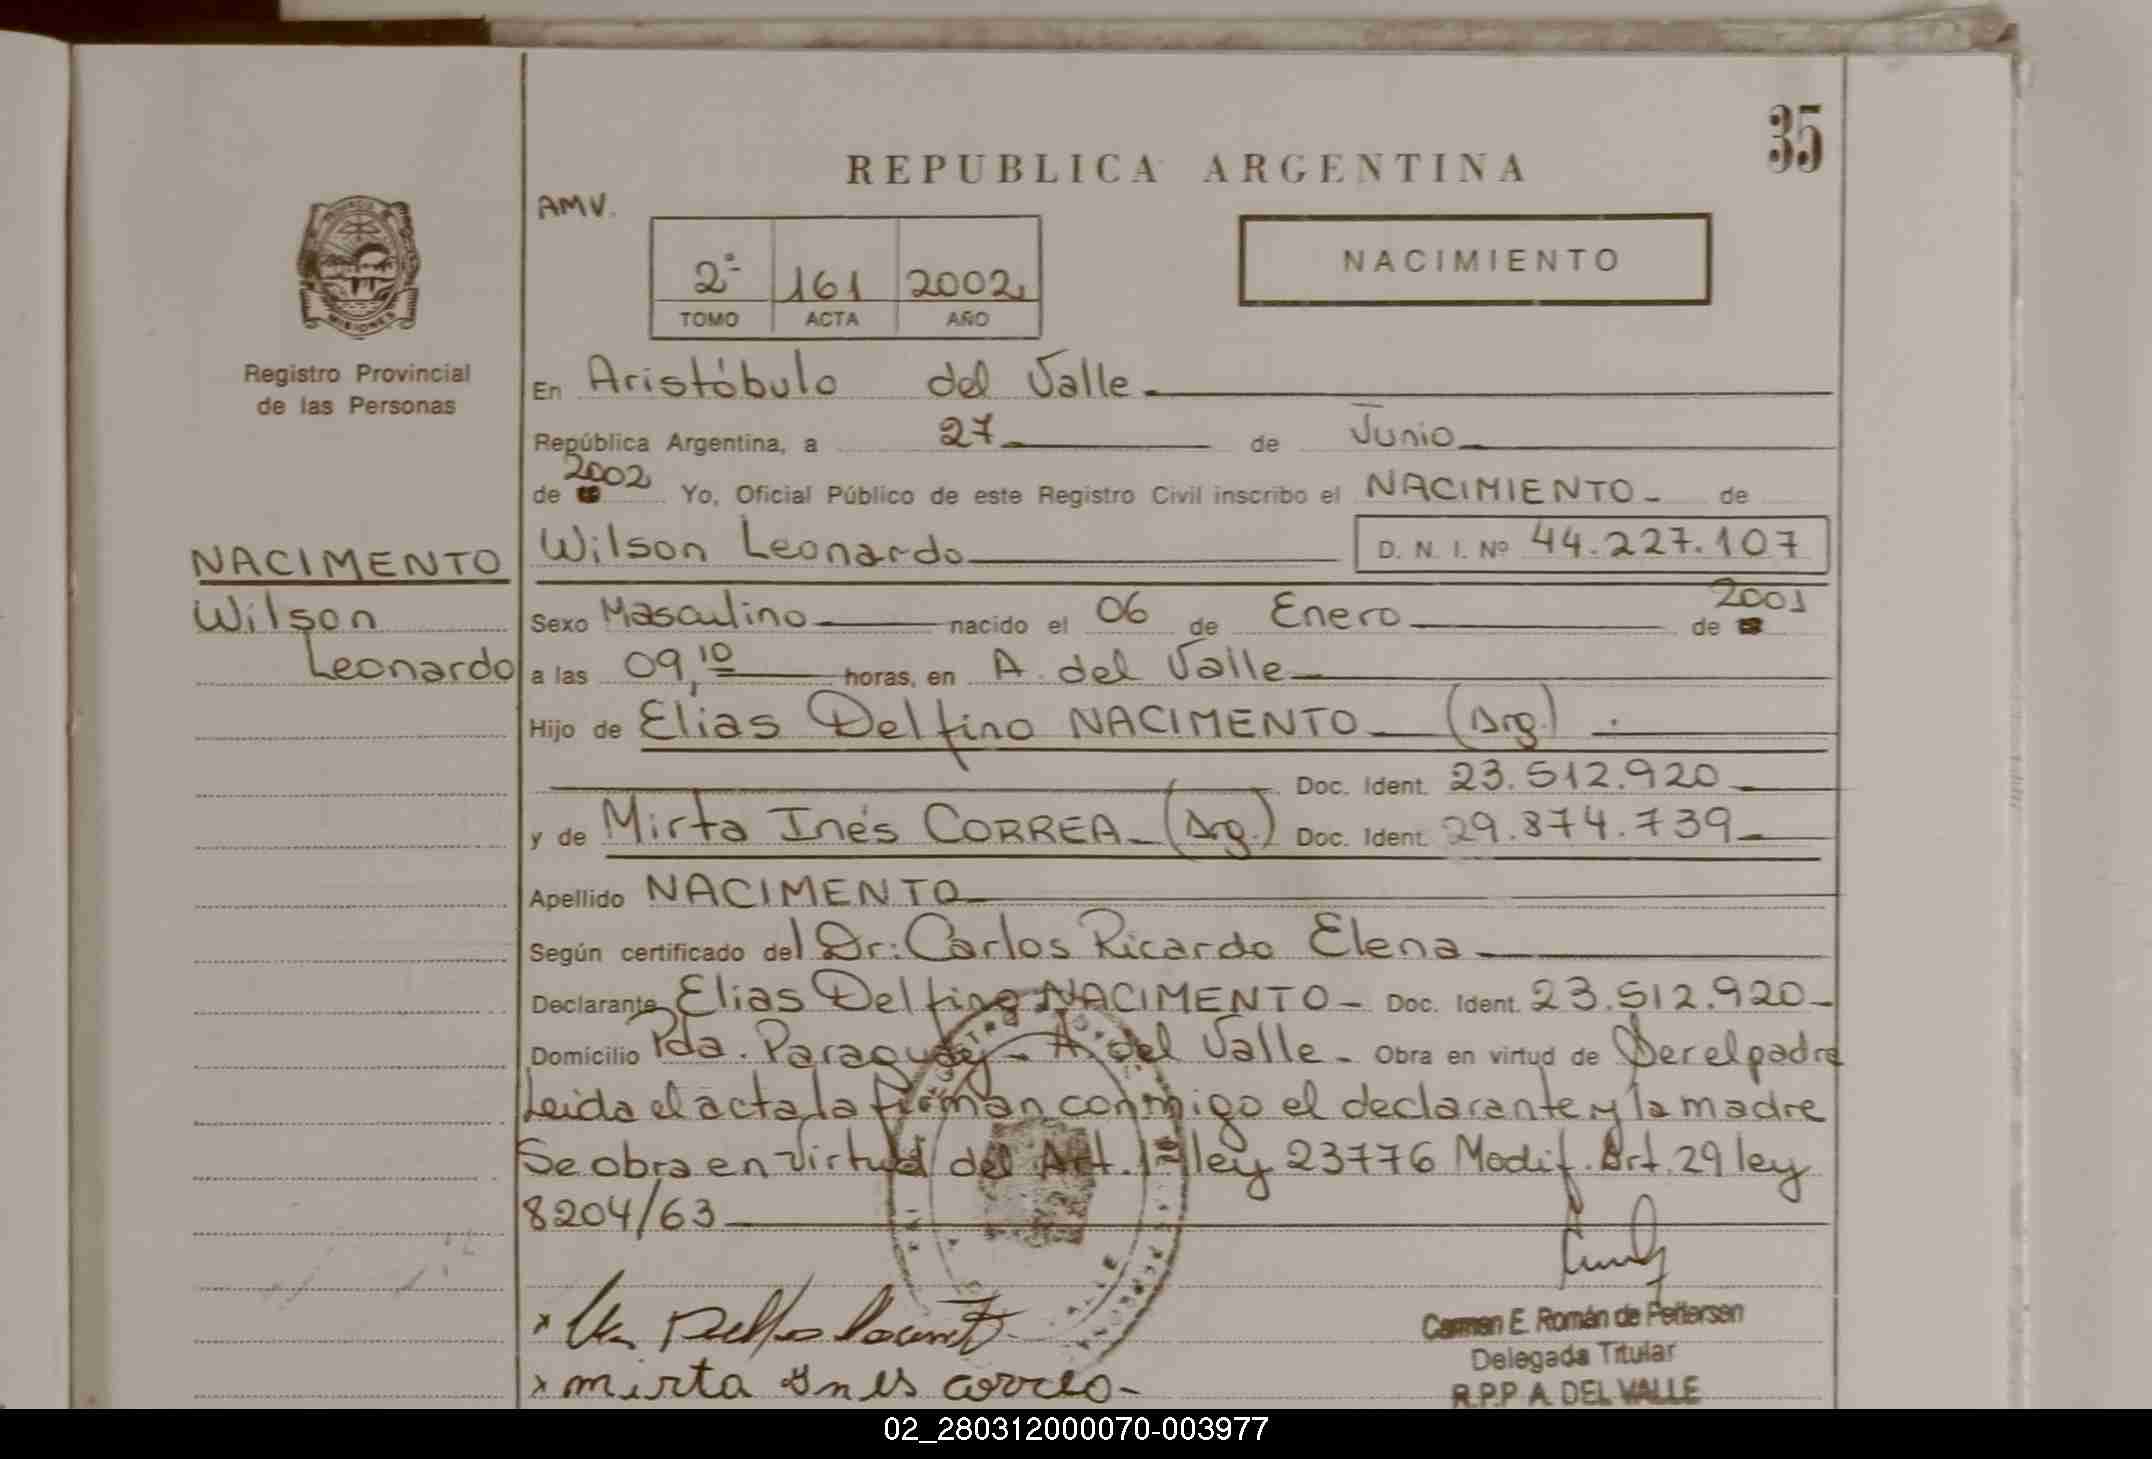 35
REPUBLICA ARGENTINA
AMV.
2º 161 2002
TOMO ACTA AÑO
NACIMIENTO
MISIONES
Registro Provincial
de las Personas
En Aristóbulo del Valle
República Argentina, a 27 de Junio
de 2002 Yo, Oficial Público de este Registro Civil inscribo el NACIMIENTO de
Wilson Leonardo D. N. I. Nº 44.227.107
NACIMENTO
Wilson
Leonardo
Sexo Masculino nacido el 06 de Enero de 2001
a las 09,10 horas, en A. del Valle
Hijo de Elias Delfino NACIMENTO (Arg.)
Doc. Ident. 23.512.920
y de Mirta Inés CORREA (Arg.) Doc. Ident. 29.874.739
Apellido NACIMENTO
Según certificado del Dr: Carlos Ricardo Elena
Declarante Elias Delfino NACIMENTO - Doc. Ident. 23.512.920
Domicilio Pda. Paraguay - A. del Valle - Obra en virtud de Ser el padre
Leida el acta la firman conmigo el declarante y la madre
Se obra en virtud del Art. 1º ley 23776 Modif. Art. 29 ley
8204/63
x mirta Ines correa-
Carmen E. Román de Pettersen
Delegada Titular
R.P.P A. DEL VALLE
02_280312000070-003977